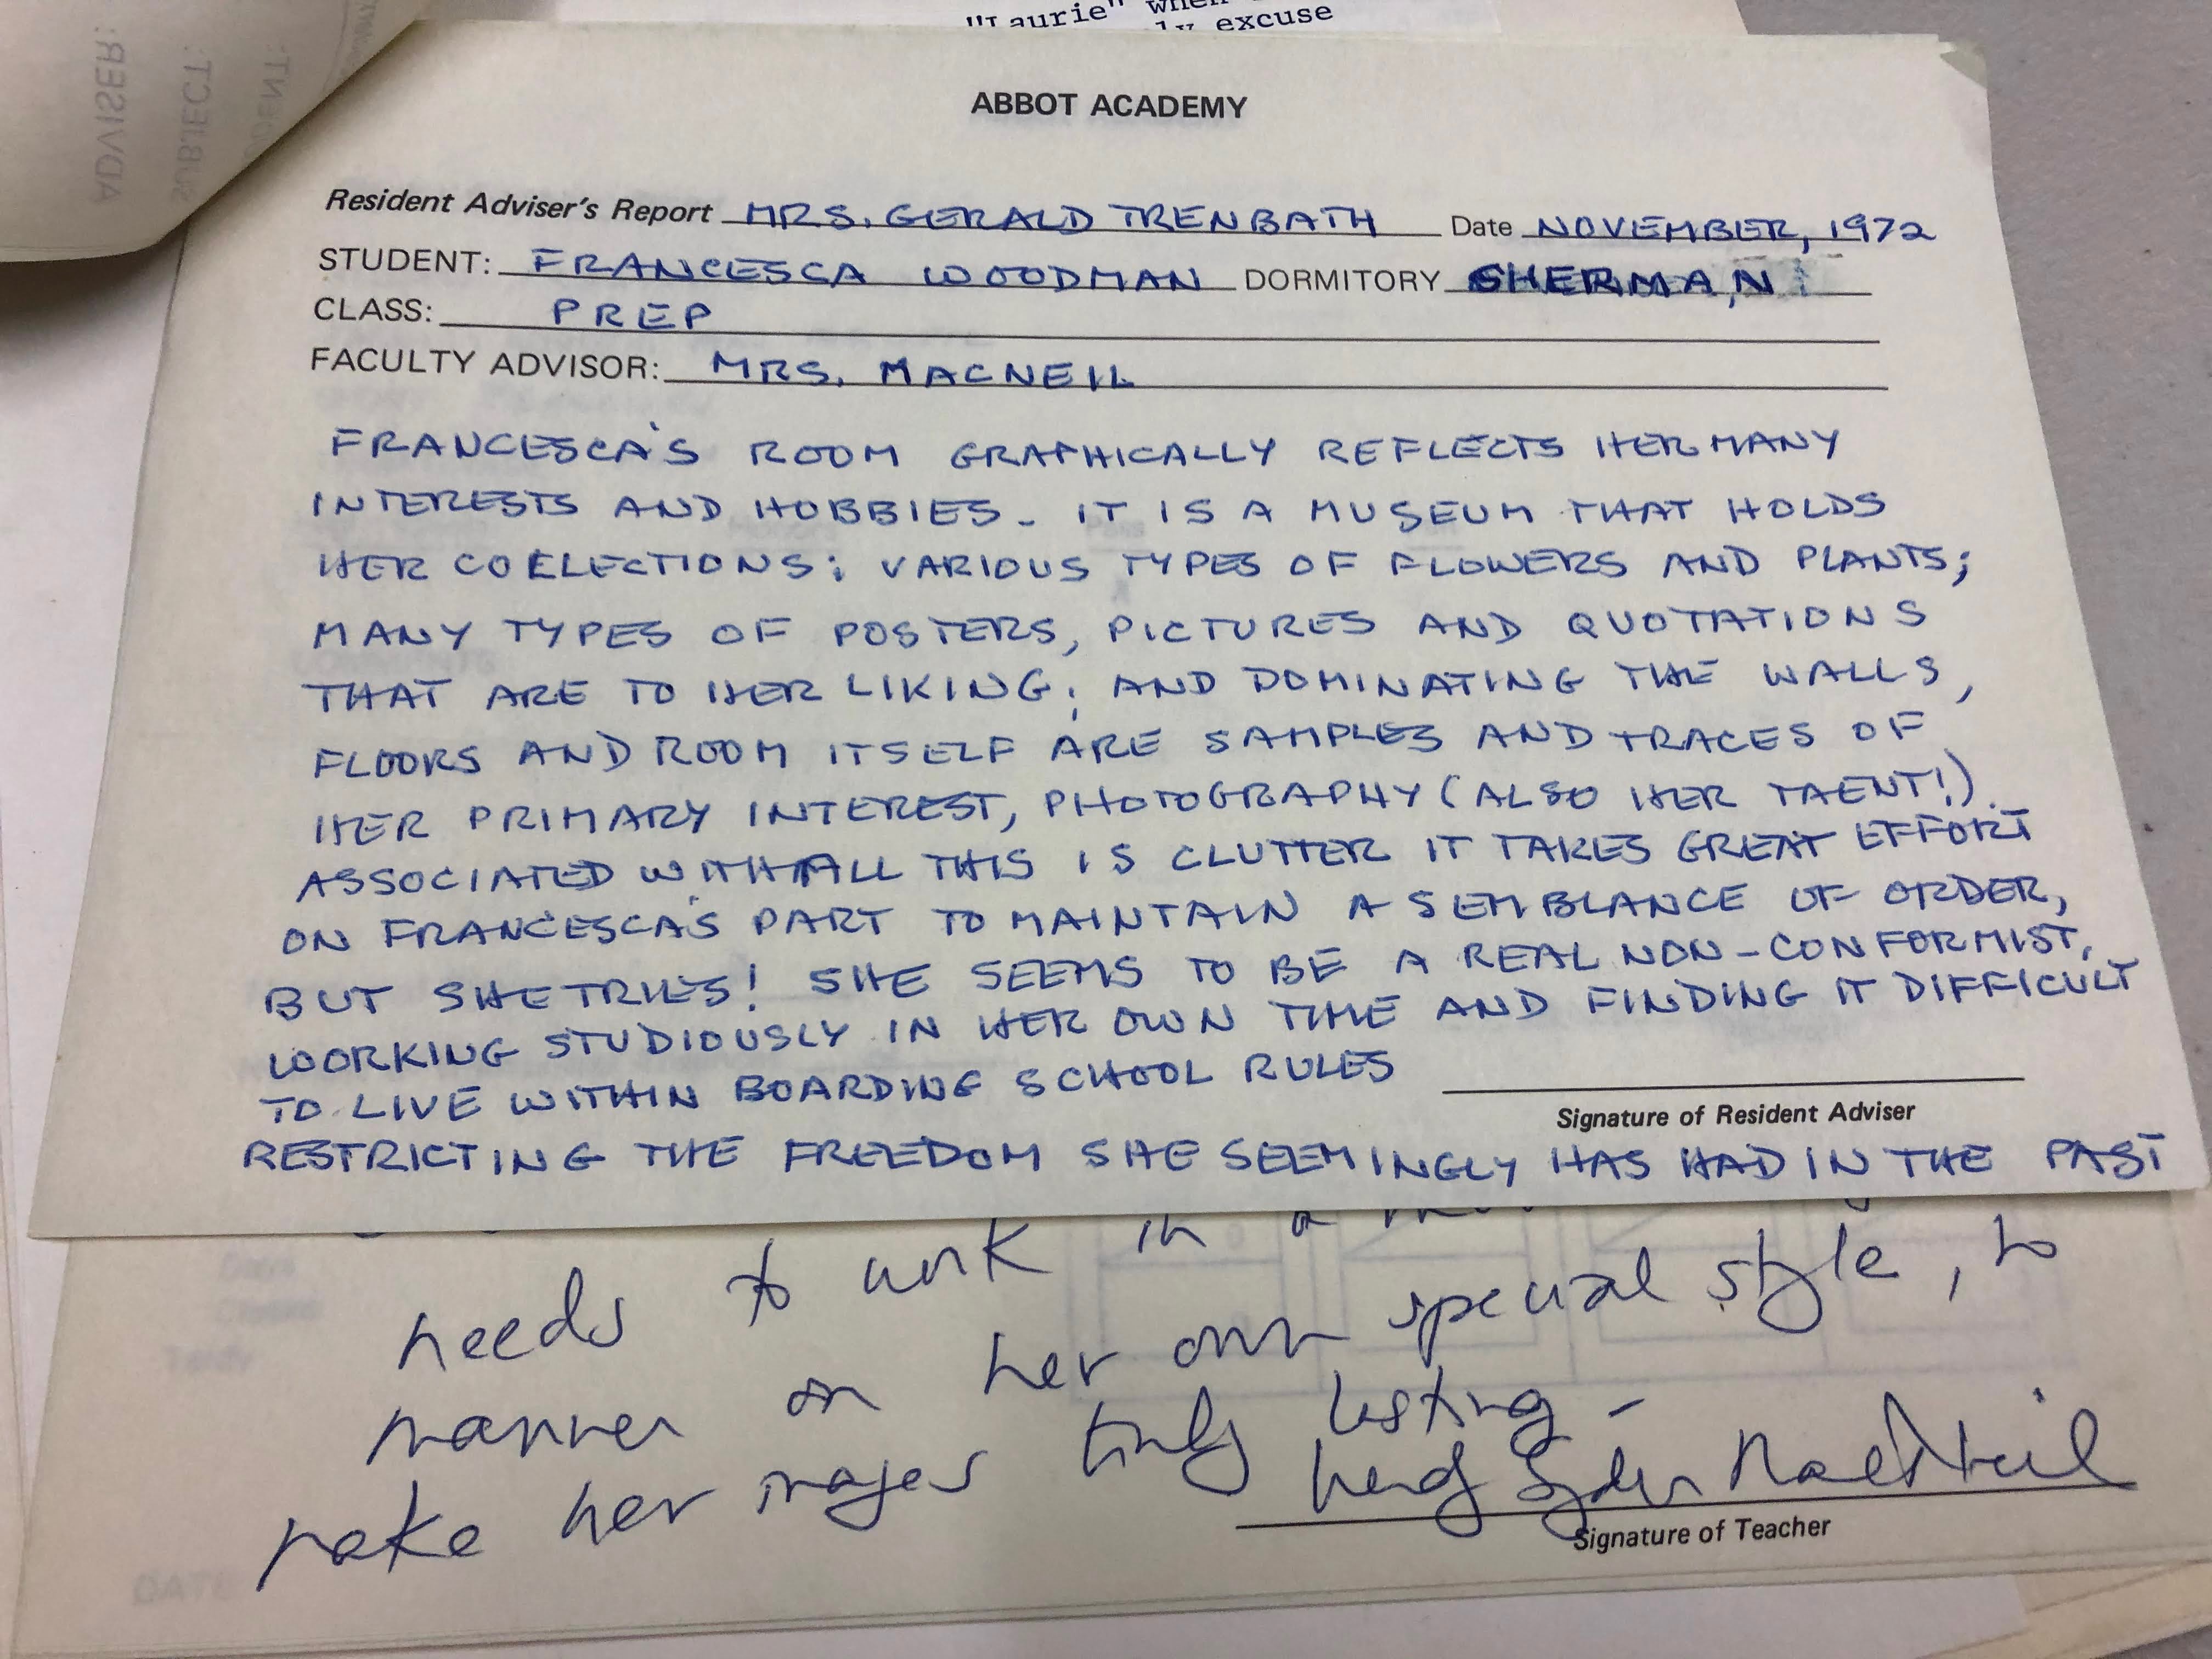 "Laurie" when
excuse
ADVISER:
SUBJECT:
ABBOT ACADEMY
Resident Adviser's Report MRS. GERALD TRENBATH Date NOVEMBER, 1972
STUDENT: FRANCESCA WOODMAN DORMITORY SHERMAN
CLASS: PREP
FACULTY ADVISOR: MRS. MACNEIL
FRANCESCA'S ROOM GRAPHICALLY REFLECTS HER MANY
INTERESTS AND HOBBIES. IT IS A MUSEUM THAT HOLDS
HER COLLECTIONS; VARIOUS TYPES OF FLOWERS AND PLANTS;
MANY TYPES OF POSTERS, PICTURES AND QUOTATIONS
THAT ARE TO HER LIKING; AND DOMINATING THE WALLS,
FLOORS AND ROOM ITSELF ARE SAMPLES AND TRACES OF
HER PRIMARY INTEREST, PHOTOGRAPHY (ALSO HER TAENT!).
ASSOCIATED WITH ALL THIS IS CLUTTER IT TAKES GREAT EFFORT
ON FRANCESCA'S PART TO MAINTAIN A SEMBLANCE OF ORDER,
BUT SHE TRIES! SHE SEEMS TO BE A REAL NON-CONFORMIST,
WORKING STUDIOUSLY IN HER OWN TIME AND FINDING IT DIFFICULT
TO LIVE WITHIN BOARDING SCHOOL RULES
Signature of Resident Adviser
RESTRICTING THE FREEDOM SHE SEEMINGLY HAS HAD IN THE PAST
needs to work in a
manner on her own special style, to
make her images truly lasting -
Signature of Teacher